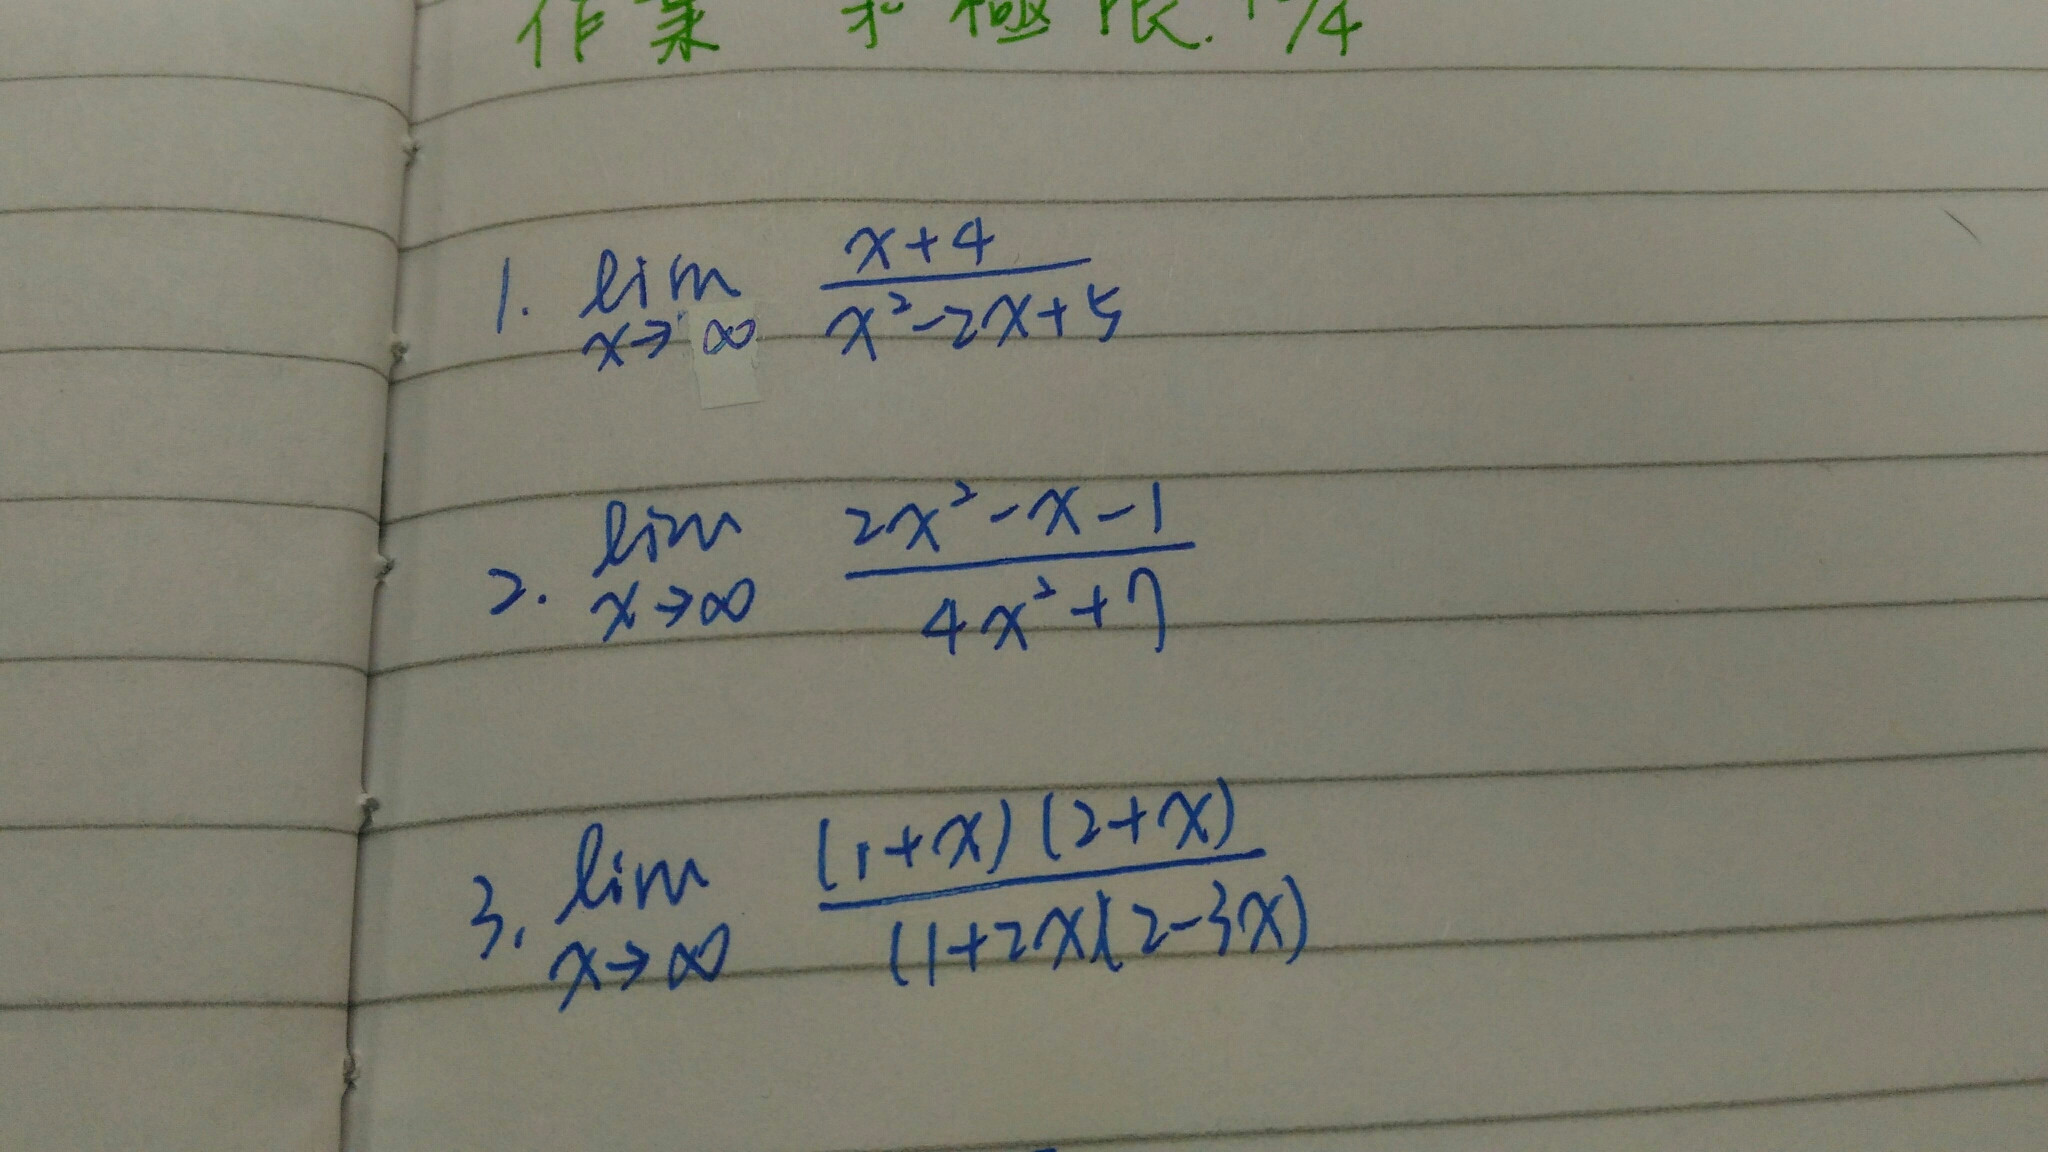 作業 求極限.
1. lim x→∞ (x+4)/(x²-2x+5)
2. lim x→∞ (2x²-x-1)/(4x²+7)
3. lim x→∞ (1+x)(2+x)/(1+2x)(2-3x)